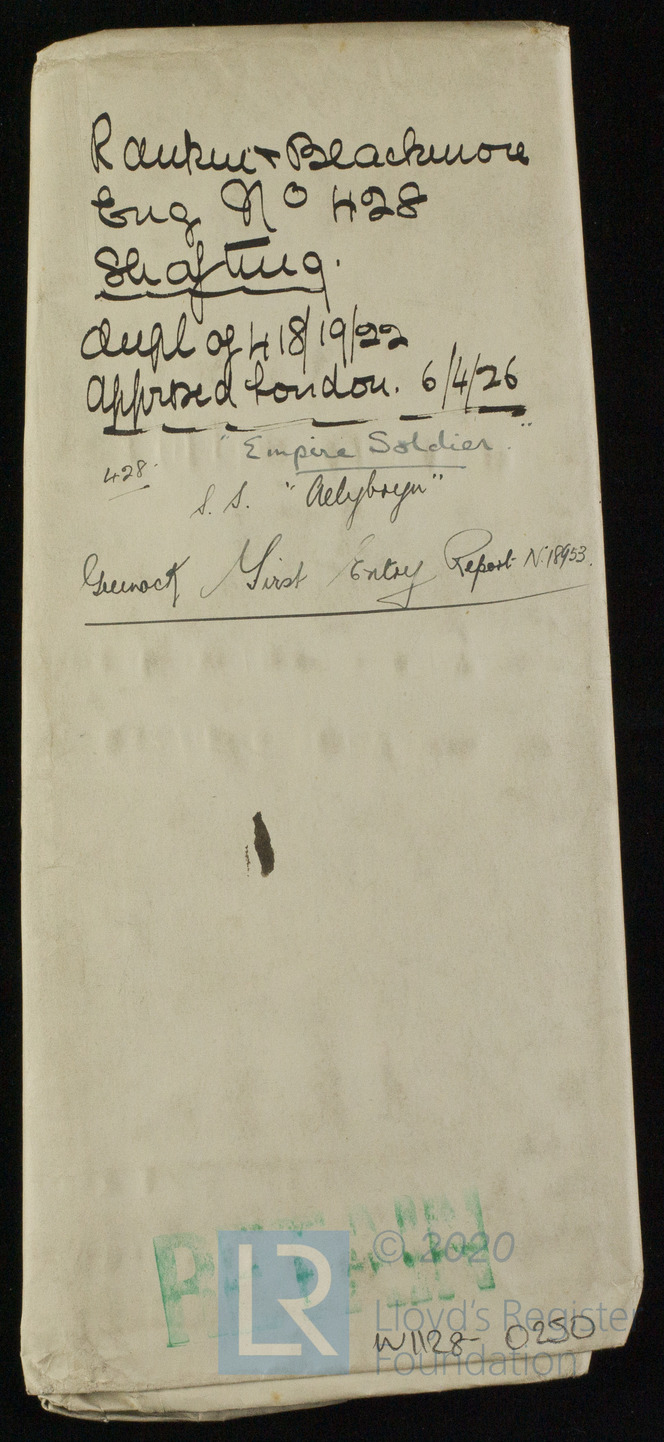 Rankin + Blackmore
Eng No 428
Shafting.
dupl of 418/19/22
Approved London. 6/4/26
"Empire Soldier."
428.
S.S. "Aelybryn"
Greenock First Entry Report No 18953.
RETAIN
© 2020
LR
Lloyd's Register
W1128-0250
Foundation